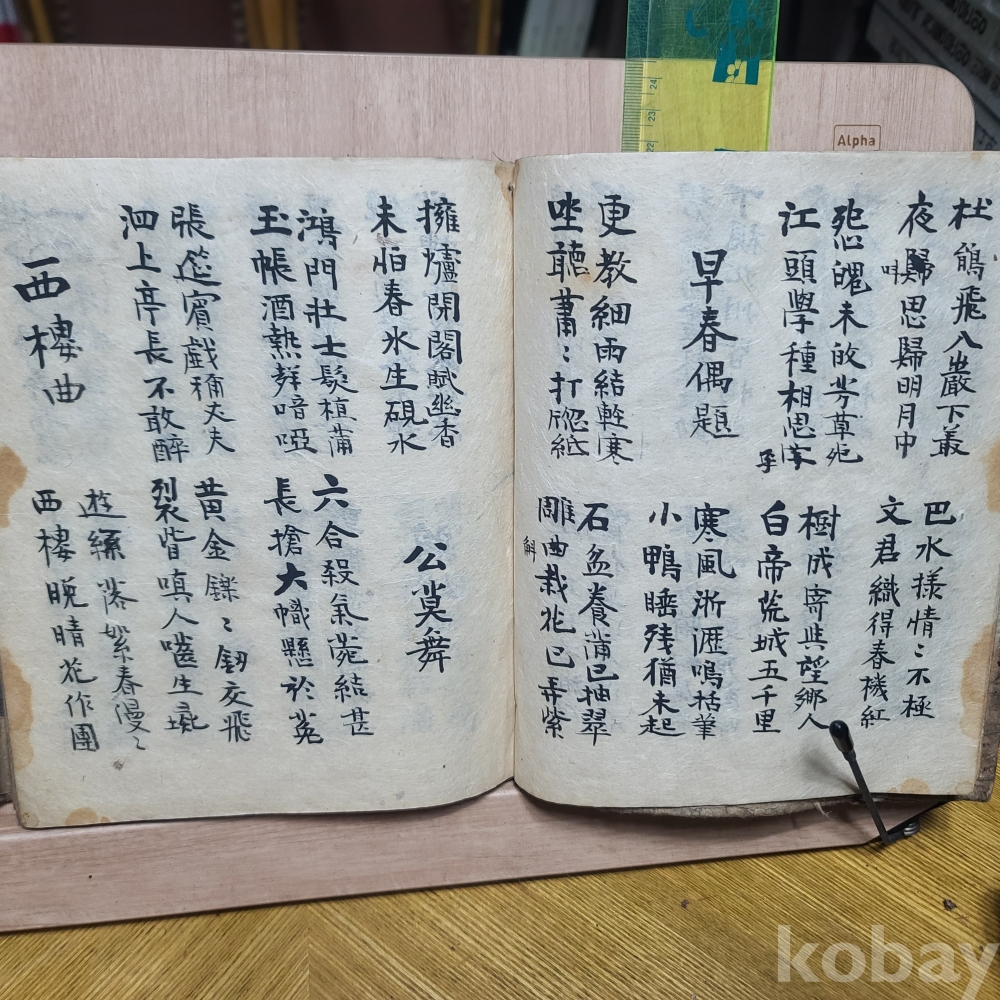 杜鵑飛入巖下叢
夜歸思歸明月中
叫
巴水樣情〻不極
文君織得春機紅
怨魄未收芳草死
江頭學種相思字
子
樹成寄與望鄉人
白帝荒城五千里
早春偶題
寒風淅瀝鳴枯葦
小鴨睡殘猶未起
更教細雨結輕寒
坐聽蕭〻打窓紙
石盆養蒲已抽翠
雕曲栽花已弄紫
斛
擁爐開閣賦幽香
未怕春氷生硯水
公莫舞
鴻門壯士髮植蒲
玉帳酒熱解喑啞
六合殺氣菀結甚
長搶大幟懸於菟
張筵賓戲稱丈夫
泗上亭長不敢醉
黃金鑠〻釰交飛
裂眥嗔人嚙生彘
西樓曲
遊絲落絮春漫〻
西樓晩晴花作團
Alpha
22
23
24
kobay